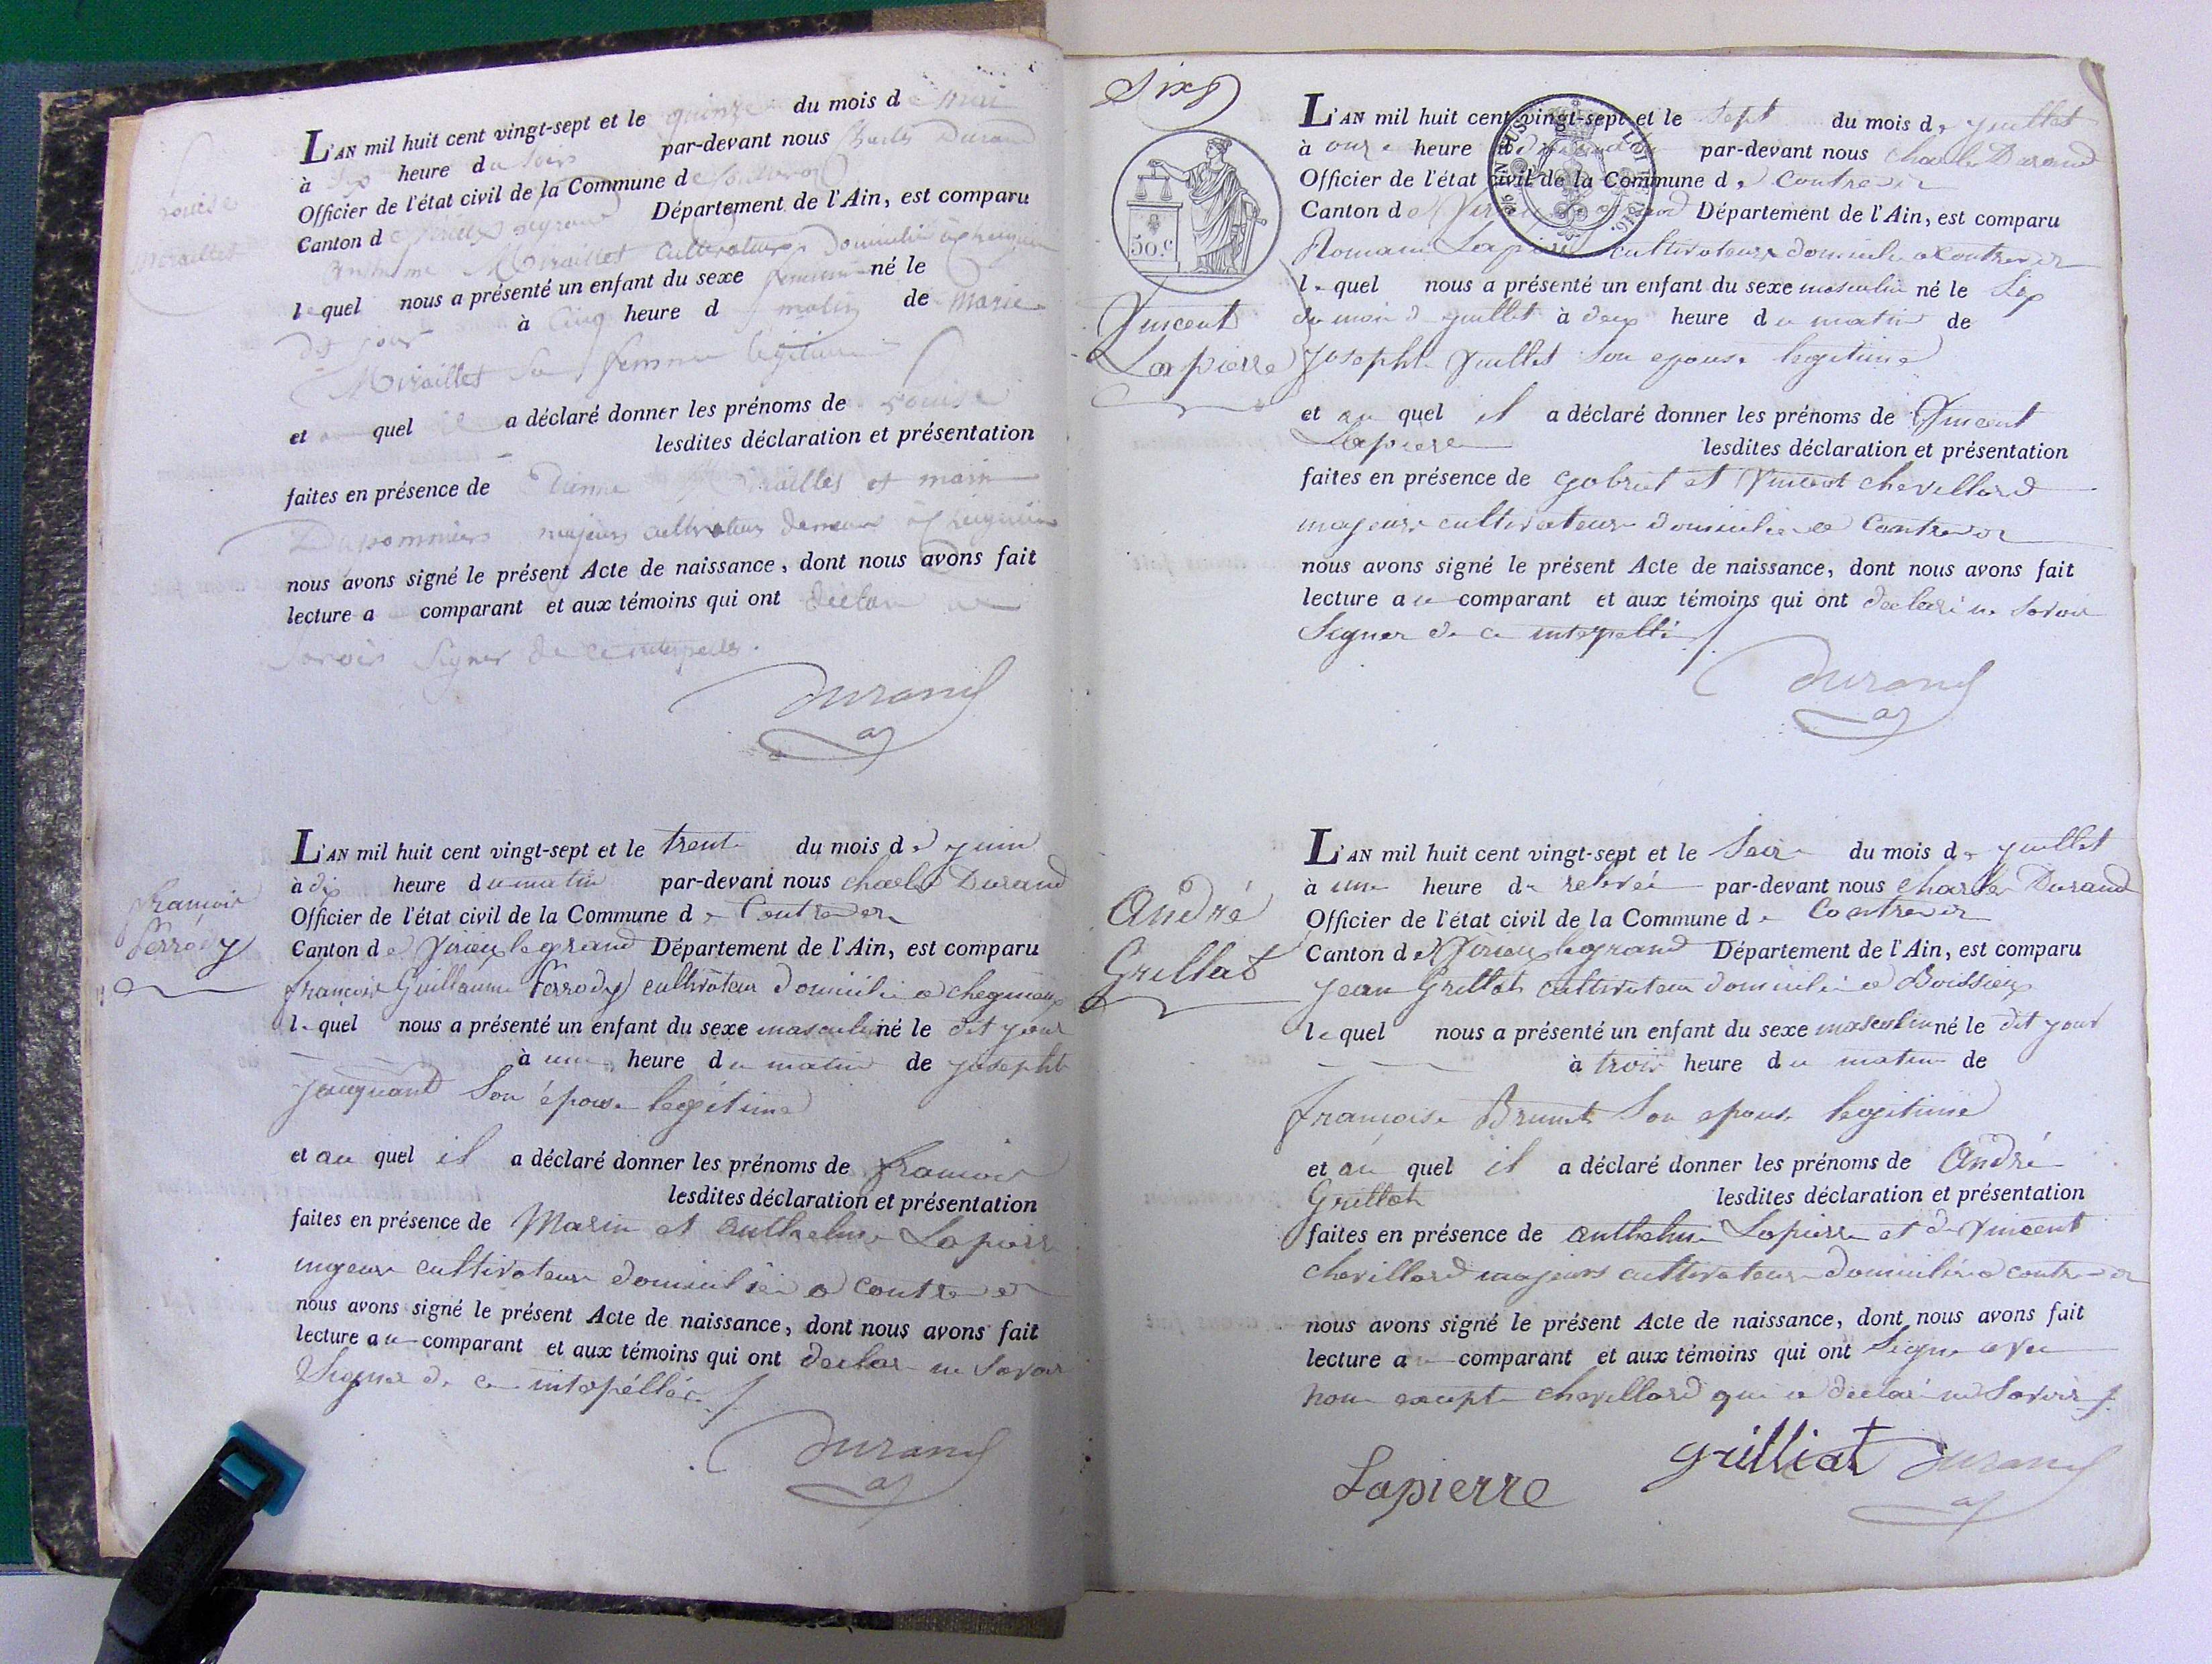 Louise
Miraillet
L'AN mil huit cent vingt-sept et le quinze du mois de mai
à six heure du Soir par-devant nous Charles Durand
Officier de l'état civil de la Commune de
Canton de Virieux legrand Département de l'Ain, est comparu
Anthelme Miraillet cultivateur Domicilié
lequel nous a présenté un enfant du sexe feminin né le
dit jour à Cinq heure d matin de Marie
Miraillet Sa femme legitime
et quel a déclaré donner les prénoms de Louise
lesdites déclaration et présentation
faites en présence de Etienne Miraillet et marin
Dupommier majeurs cultivateur
nous avons signé le présent Acte de naissance, dont nous avons fait
lecture a comparant et aux témoins qui ont declare ne
savoir Signer de ce interpellés.
Durand
francois
Ferrody
L'AN mil huit cent vingt-sept et le trente du mois de juin
à dix heure du matin par-devant nous charles Durand
Officier de l'état civil de la Commune de Contrevoz
Canton de Virieux legrand Département de l'Ain, est comparu
francois Guillaume Ferrody cultivateur domicilié a
lequel nous a présenté un enfant du sexe masculin né le dit jour
à une heure du matin de josephte
Son épouse legitime
et au quel il a déclaré donner les prénoms de francois
lesdites déclaration et présentation
faites en présence de Marin et anthelme Lapierre
majeurs cultivateurs domiciliés a contrevoz
nous avons signé le présent Acte de naissance, dont nous avons fait
lecture au comparant et aux témoins qui ont declare ne Savoir
Signer de ce interpéllés ./.
Durand
Six
50.C
Vincent
Lapierre
L'AN mil huit cent vingt-sept et le Sept du mois de juillet
à onze heure par-devant nous charles Durand
Officier de l'état civil de la Commune de Contrevoz
Canton de Virieux le grand Département de l'Ain, est comparu
Romain Lapierre cultivateur domicilié a Contrevoz
lequel nous a présenté un enfant du sexe masculin né le Six
du mois de juillet à deux heure du matin de
josephte Juillet Son epouse legitime
et au quel il a déclaré donner les prénoms de Vincent
Lapierre lesdites déclaration et présentation
faites en présence de gabriel et Vincent chevillard
majeurs cultivateurs domiciliés a Contrevoz
nous avons signé le présent Acte de naissance, dont nous avons fait
lecture au comparant et aux témoins qui ont declaré ne Savoir
Signer de ce interpellés ./.
Durand
André
Grillat
L'AN mil huit cent vingt-sept et le Seize du mois de juillet
à une heure de relevée par-devant nous charles Durand
Officier de l'état civil de la Commune de Contrevoz
Canton de Virieux legrand Département de l'Ain, est comparu
jean Grillat cultivateur domicilié a Boissieux
lequel nous a présenté un enfant du sexe masculin né le dit jour
à trois heure du matin de
françoise Brunet Son epouse legitime
et au quel il a déclaré donner les prénoms de André
Grillat lesdites déclaration et présentation
faites en présence de anthelme Lapierre et de Vincent
chevillard majeurs cultivateurs domiciliés a contrevoz
nous avons signé le présent Acte de naissance, dont nous avons fait
lecture au comparant et aux témoins qui ont Signé avec
nous excepté chevillard qui a declaré ne Savoir ./.
Lapierre grilliat Durand